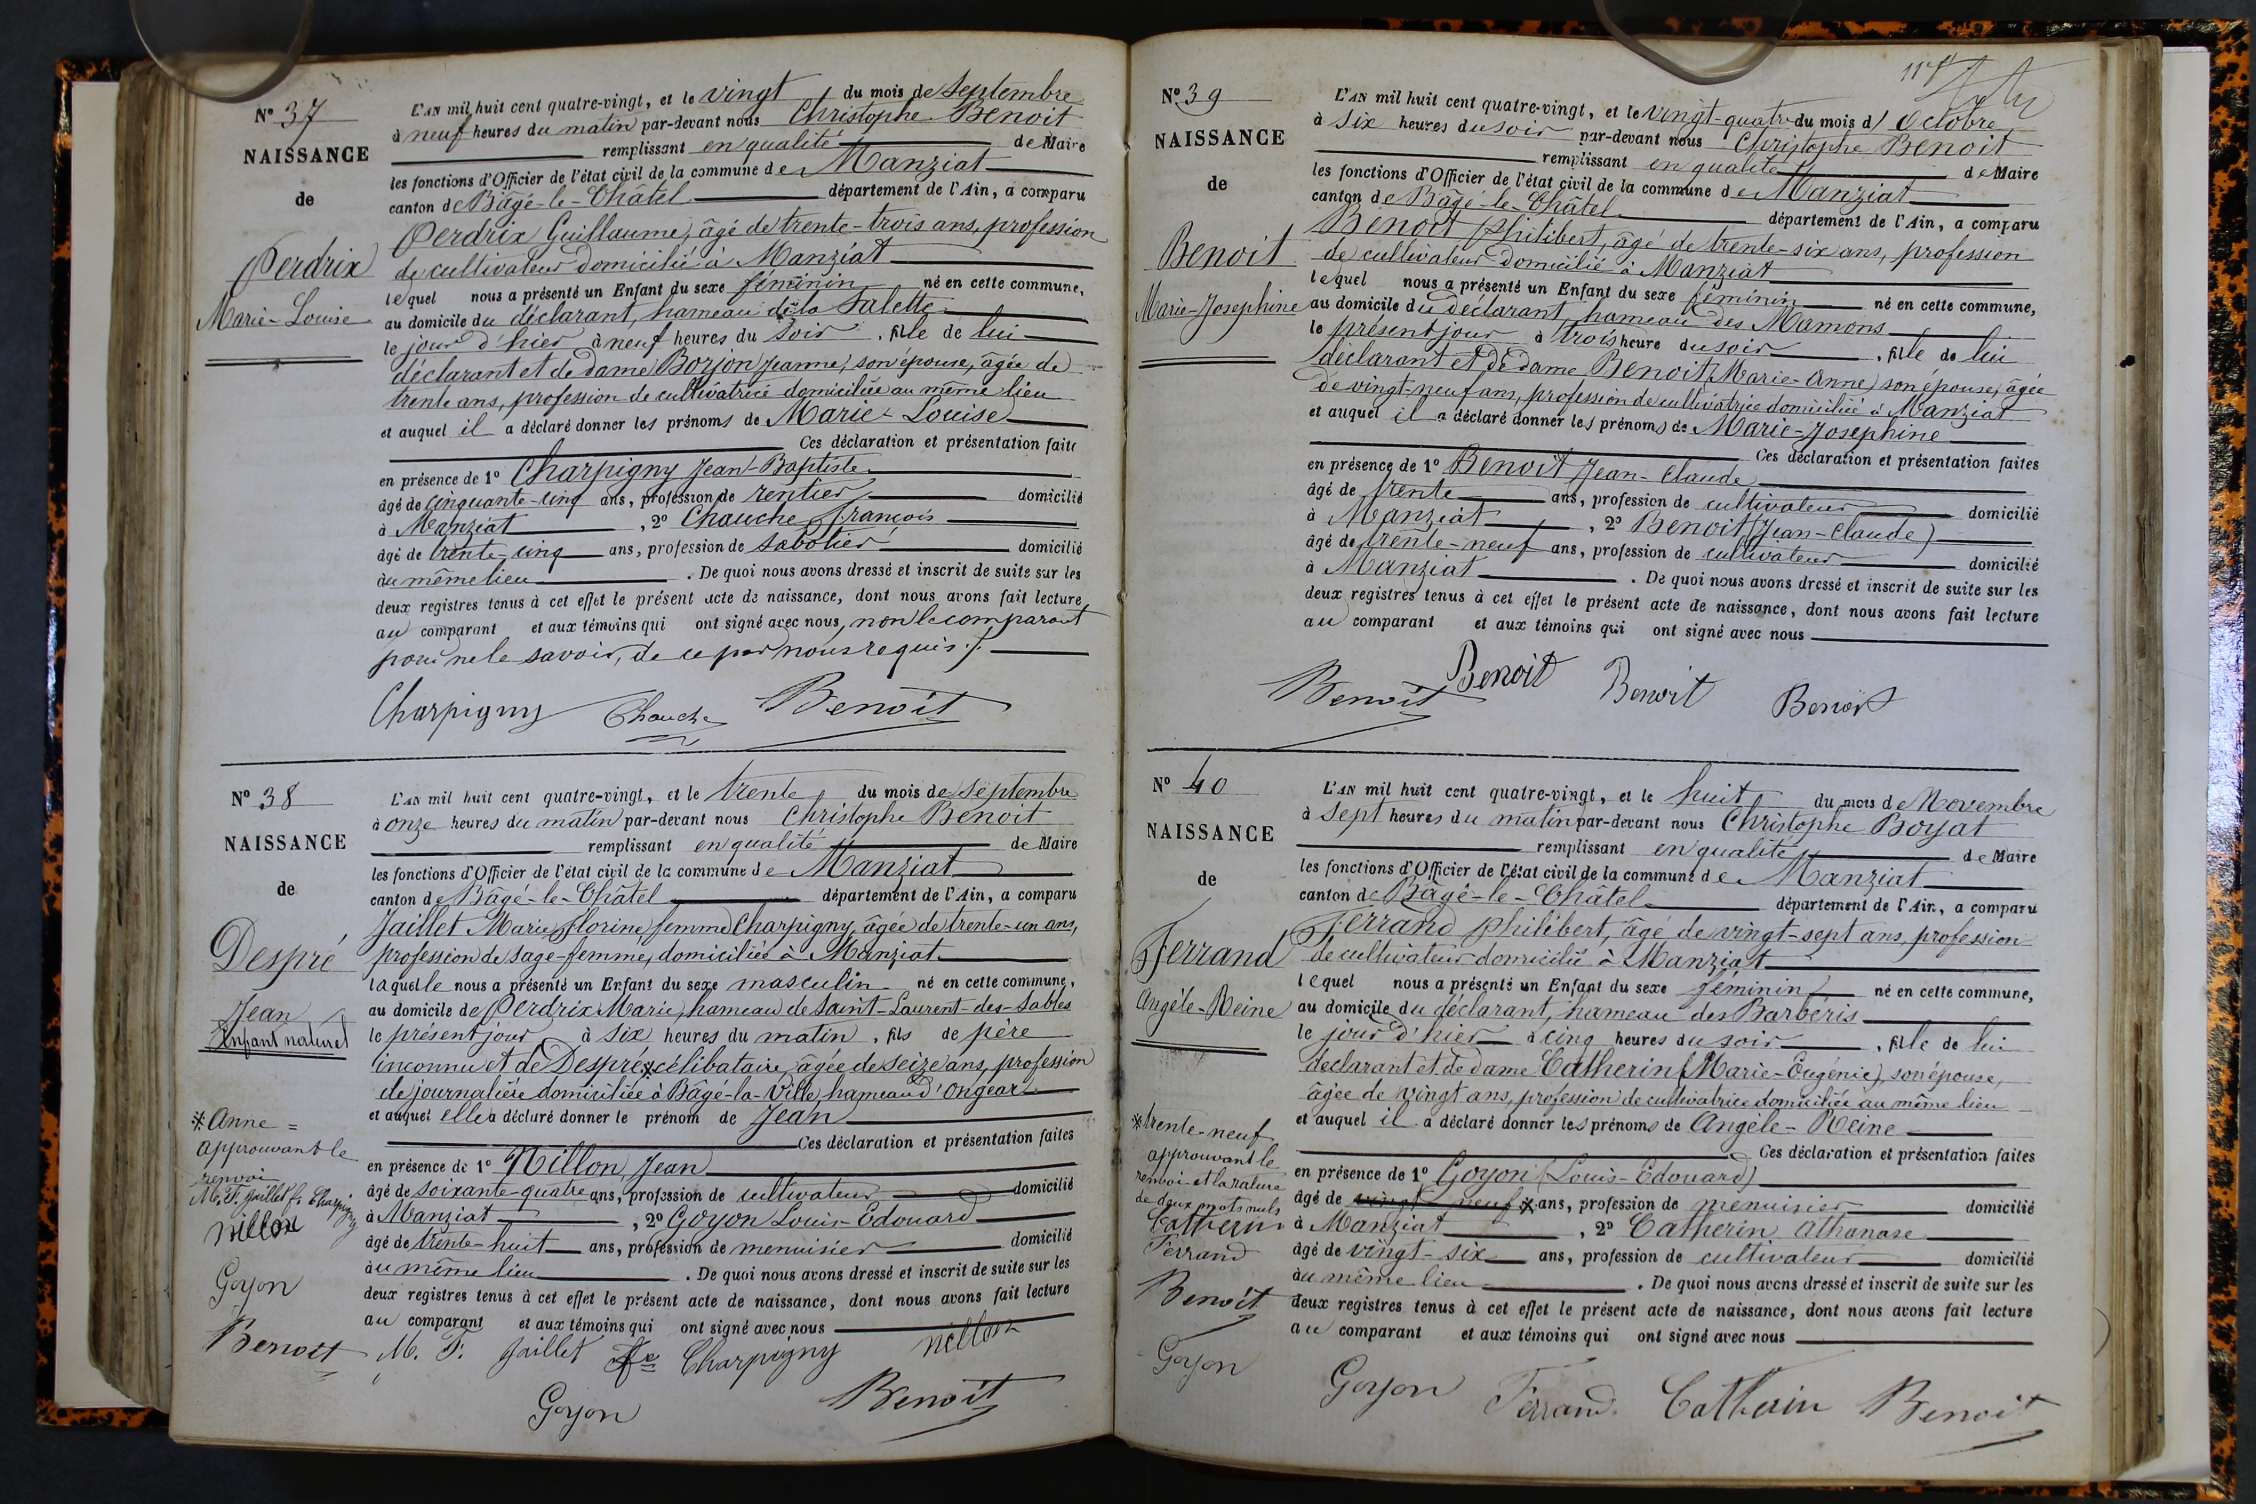 N° 37
NAISSANCE
de
Perdrix
Marie-Louise
L'AN mil huit cent quatre-vingt, et le vingt du mois de Septembre
à neuf heures du matin par-devant nous Christophe Benoit
remplissant en qualité de Maire
les fonctions d'Officier de l'état civil de la commune de Manziat
canton de Bâgé-le-Châtel département de l'Ain, a comparu
Perdrix Guillaume, âgé de trente-trois ans, profession
de cultivateur domicilié à Manziat
lequel nous a présenté un Enfant du sexe féminin né en cette commune,
au domicile du déclarant, hameau de la Salette
le jour d'hier à neuf heures du soir, fille de lui
déclarant et de dame Borjon Jeanne, son épouse, âgée de
trente ans, profession de cultivatrice domiciliée au même lieu
et auquel il a déclaré donner les prénoms de Marie-Louise
Ces déclaration et présentation faite
en présence de 1° Charpigny Jean-Baptiste
âgé de cinquante-cinq ans, profession de rentier domicilié
à Manziat, 2° Chauche François
âgé de trente-cinq ans, profession de sabotier domicilié
au même lieu. De quoi nous avons dressé et inscrit de suite sur les
deux registres tenus à cet effet le présent acte de naissance, dont nous avons fait lecture
au comparant et aux témoins qui ont signé avec nous, non le comparant
pour ne le savoir, de ce par nous requis./.
Charpigny Chauche Benoit
N° 38
NAISSANCE
de
Despré
Jean
Enfant naturel
* Anne =
approuvant le
renvoi
M. F. Jaillet fe Charpigny
Nillon
Goyon
Benoit
L'AN mil huit cent quatre-vingt, et le trente du mois de Septembre
à onze heures du matin par-devant nous Christophe Benoit
remplissant en qualité de Maire
les fonctions d'Officier de l'état civil de la commune de Manziat
canton de Bâgé-le-Châtel département de l'Ain, a comparu
Jaillet Marie Florine femme Charpigny, âgée de trente-un ans,
profession de sage-femme, domiciliée à Manziat
laquelle nous a présenté un Enfant du sexe masculin né en cette commune,
au domicile de Perdrix Marie, hameau de Saint-Laurent-des-Sables
le présent jour à six heures du matin, fils de père
inconnu et de Despré * célibataire, âgée de seize ans, profession
de journalière domiciliée à Bâgé-la-Ville, hameau d'Ongear
et auquel elle a déclaré donner le prénom de Jean
Ces déclaration et présentation faites
en présence de 1° Nillon, Jean
âgé de soixante-quatre ans, profession de cultivateur domicilié
à Manziat, 2° Goyon Louis-Edouard
âgé de trente-huit ans, profession de menuisier domicilié
au même lieu. De quoi nous avons dressé et inscrit de suite sur les
deux registres tenus à cet effet le présent acte de naissance, dont nous avons fait lecture
au comparant et aux témoins qui ont signé avec nous
M. F. Jaillet fe Charpigny Nillon
Goyon Benoit
N° 39
NAISSANCE
de
Benoit
Marie-Josephine
L'AN mil huit cent quatre-vingt, et le vingt-quatre du mois d'Octobre
à six heures du soir par-devant nous Christophe Benoit
remplissant en qualité de Maire
les fonctions d'Officier de l'état civil de la commune de Manziat
canton de Bâgé-le-Châtel département de l'Ain, a comparu
Benoit Philibert, âgé de trente-six ans, profession
de cultivateur domicilié à Manziat
lequel nous a présenté un Enfant du sexe féminin né en cette commune,
au domicile du déclarant, hameau des Mamons
le présent jour à trois heure du soir, fille de lui
déclarant et de dame Benoit (Marie-Anne) son épouse, âgée
de vingt-neuf ans, profession de cultivatrice domiciliée à Manziat
et auquel il a déclaré donner les prénoms de Marie-Josephine
Ces déclaration et présentation faites
en présence de 1° Benoit Jean-Claude
âgé de trente ans, profession de cultivateur domicilié
à Manziat, 2° Benoit (Jean-Claude)
âgé de trente-neuf ans, profession de cultivateur domicilié
à Manziat. De quoi nous avons dressé et inscrit de suite sur les
deux registres tenus à cet effet le présent acte de naissance, dont nous avons fait lecture
au comparant et aux témoins qui ont signé avec nous
Benoit Benoit Benoit Benoit
N° 40
NAISSANCE
de
Ferrand
Angèle-Reine
* trente-neuf
approuvant le
renvoi et la rature
de deux mots nuls
Catherin
Ferrand
Benoit
Goyon
L'AN mil huit cent quatre-vingt, et le huit du mois de Novembre
à sept heures du matin par-devant nous Christophe Boyat
remplissant en qualité de Maire
les fonctions d'Officier de l'état civil de la commune de Manziat
canton de Bâgé-le-Châtel département de l'Ain, a comparu
Ferrand Philibert, âgé de vingt-sept ans, profession
de cultivateur domicilié à Manziat
lequel nous a présenté un Enfant du sexe féminin né en cette commune,
au domicile du déclarant, hameau des Barbéris
le jour d'hier à cinq heures du soir, fille de lui
déclarant et de dame Catherin (Marie-Eugénie), son épouse,
âgée de vingt ans, profession de cultivatrice domiciliée au même lieu
et auquel il a déclaré donner les prénoms de Angèle-Reine
Ces déclaration et présentation faites
en présence de 1° Goyon (Louis-Edouard)
âgé de vingt neuf * ans, profession de menuisier domicilié
à Manziat, 2° Catherin Athanase
âgé de vingt-six ans, profession de cultivateur domicilié
au même lieu. De quoi nous avons dressé et inscrit de suite sur les
deux registres tenus à cet effet le présent acte de naissance, dont nous avons fait lecture
au comparant et aux témoins qui ont signé avec nous
Goyon Ferrand Catherin Benoit